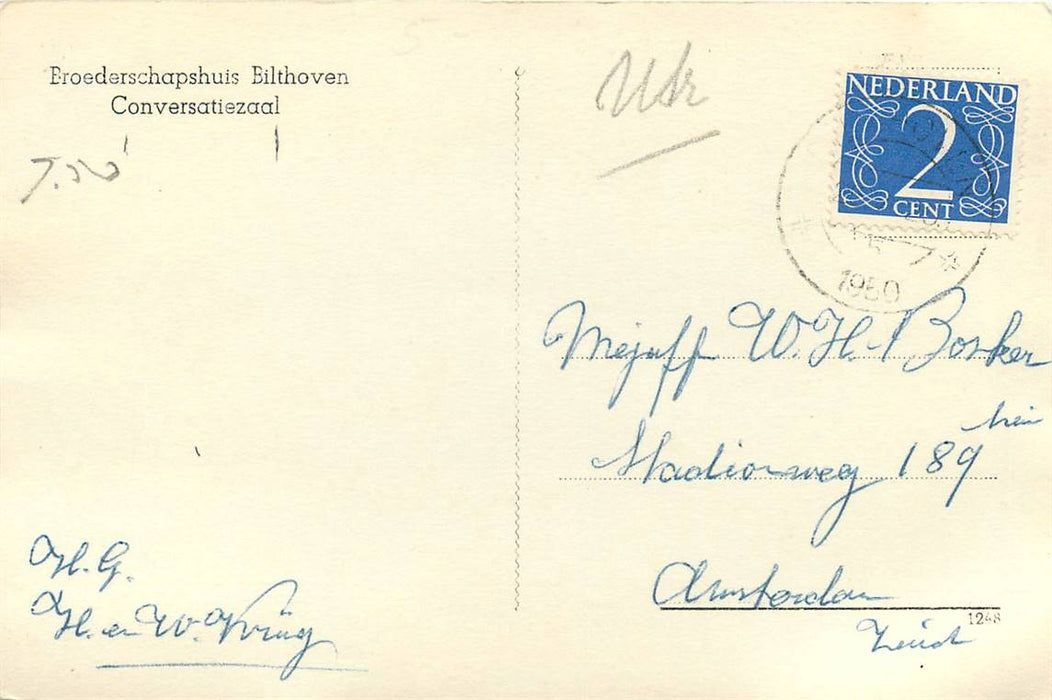 Broederschapshuis Bilthoven
Conversatiezaal
7.50
Utr
NEDERLAND
2
CENT
1950
Mejuff W. H. Bosker
Stadionweg 189
Amsterdam
Zuid
1248
H. G.
H. en W.